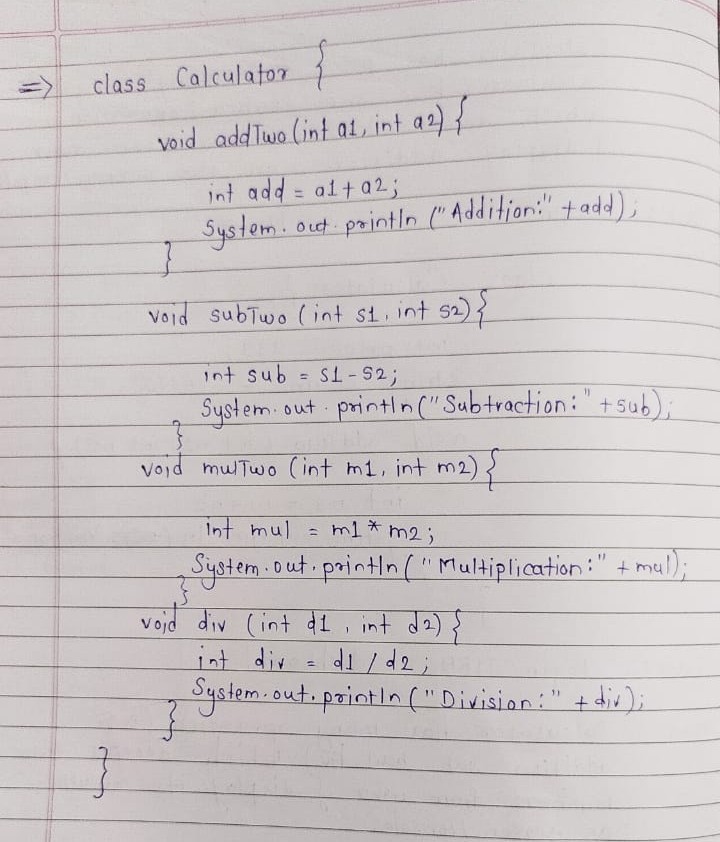 => class Calculator {
void addTwo(int a1, int a2) {
int add = a1+a2;
System.out.println ("Addition:" +add);
}
void subTwo (int s1, int s2) {
int sub = s1-s2;
System.out.println("Subtraction:" +sub);
}
void mulTwo (int m1, int m2) {
int mul = m1 * m2;
System.out.println ("Multiplication:" + mul);
}
void div (int d1, int d2) {
int div = d1 / d2;
System.out.println ("Division:" + div);
}
}